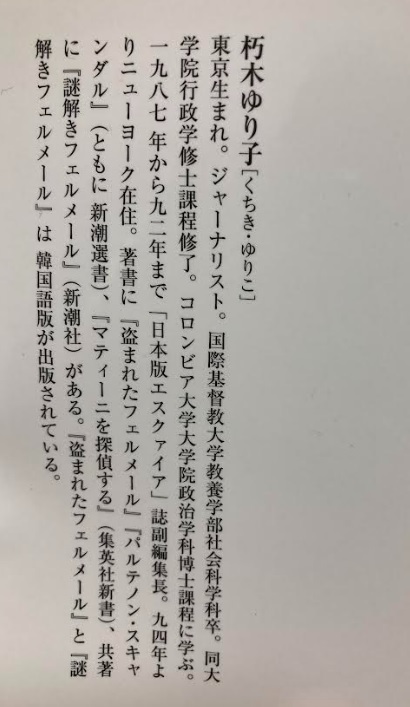 朽木ゆり子[くちき・ゆりこ]
東京生まれ。ジャーナリスト。国際基督教大学教養学部社会科学科卒。同大
学院行政学修士課程修了。コロンビア大学大学院政治学科博士課程に学ぶ。
一九八七年から九二年まで「日本版エスクァイア」誌副編集長。九四年よ
りニューヨーク在住。著書に『盗まれたフェルメール』『パルテノン・スキャ
ンダル』(ともに新潮選書)、『マティーニを探偵する』(集英社新書)、共著
に『謎解きフェルメール』(新潮社)がある。『盗まれたフェルメール』と『謎
解きフェルメール』は韓国語版が出版されている。